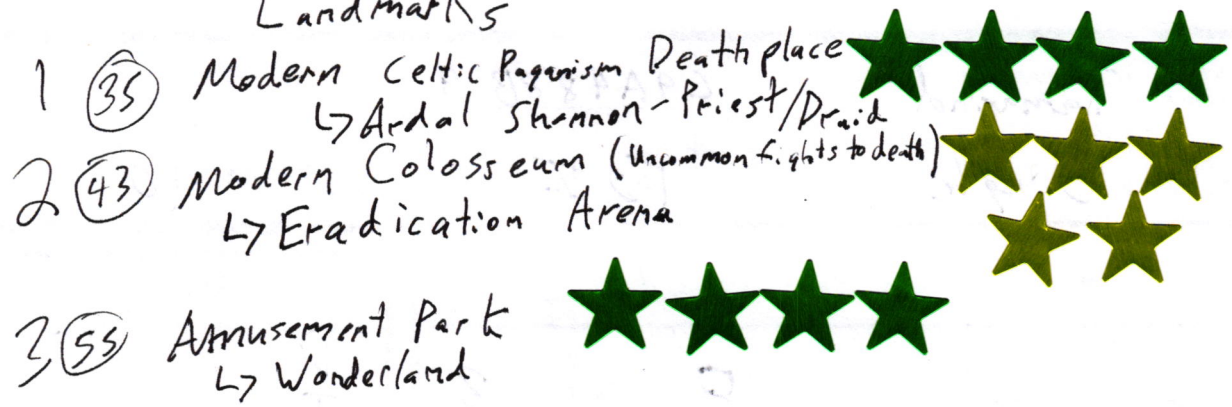 Landmarks
1 (35) Modern Celtic Paganism Deathplace
↳ Ardal Shannon - Priest/Druid
2 (43) Modern Colosseum (Uncommon fights to death)
↳ Eradication Arena
3 (55) Amusement Park
↳ Wonderland